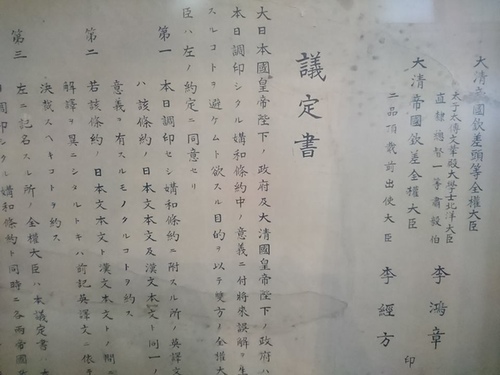 大清帝國欽差頭等全權大臣
太子太傅文華殿大學士北洋大臣
直隷總督一等肅毅伯 李鴻章
大清帝國欽差全權大臣
二品頂戴前出使大臣 李經方 印
議定書
大日本國皇帝陛下ノ政府及大清國皇帝陛下ノ政府ハ
本日調印シタル媾和條約中ノ意義ニ付將來誤解ヲ生
スルコトヲ避ケムト欲スル目的ヲ以テ雙方ノ全權大
臣ハ左ノ約定ニ同意セリ
第一 本日調印セシ媾和條約ニ附スル所ノ英譯文
ハ該條約ノ日本文本文及漢文本文ト同一ノ
意義ヲ有スルモノタルコトヲ約ス
第二 若該條約ノ日本文本文ト漢文本文トノ間ニ
解釋ヲ異ニシタルトキハ前記英譯文ニ依テ
決裁スヘキコトヲ約ス
第三 左ニ記名スル所ノ全權大臣ハ本議定書ハ本
調印シタル媾和條約ト同時ニ各兩帝國